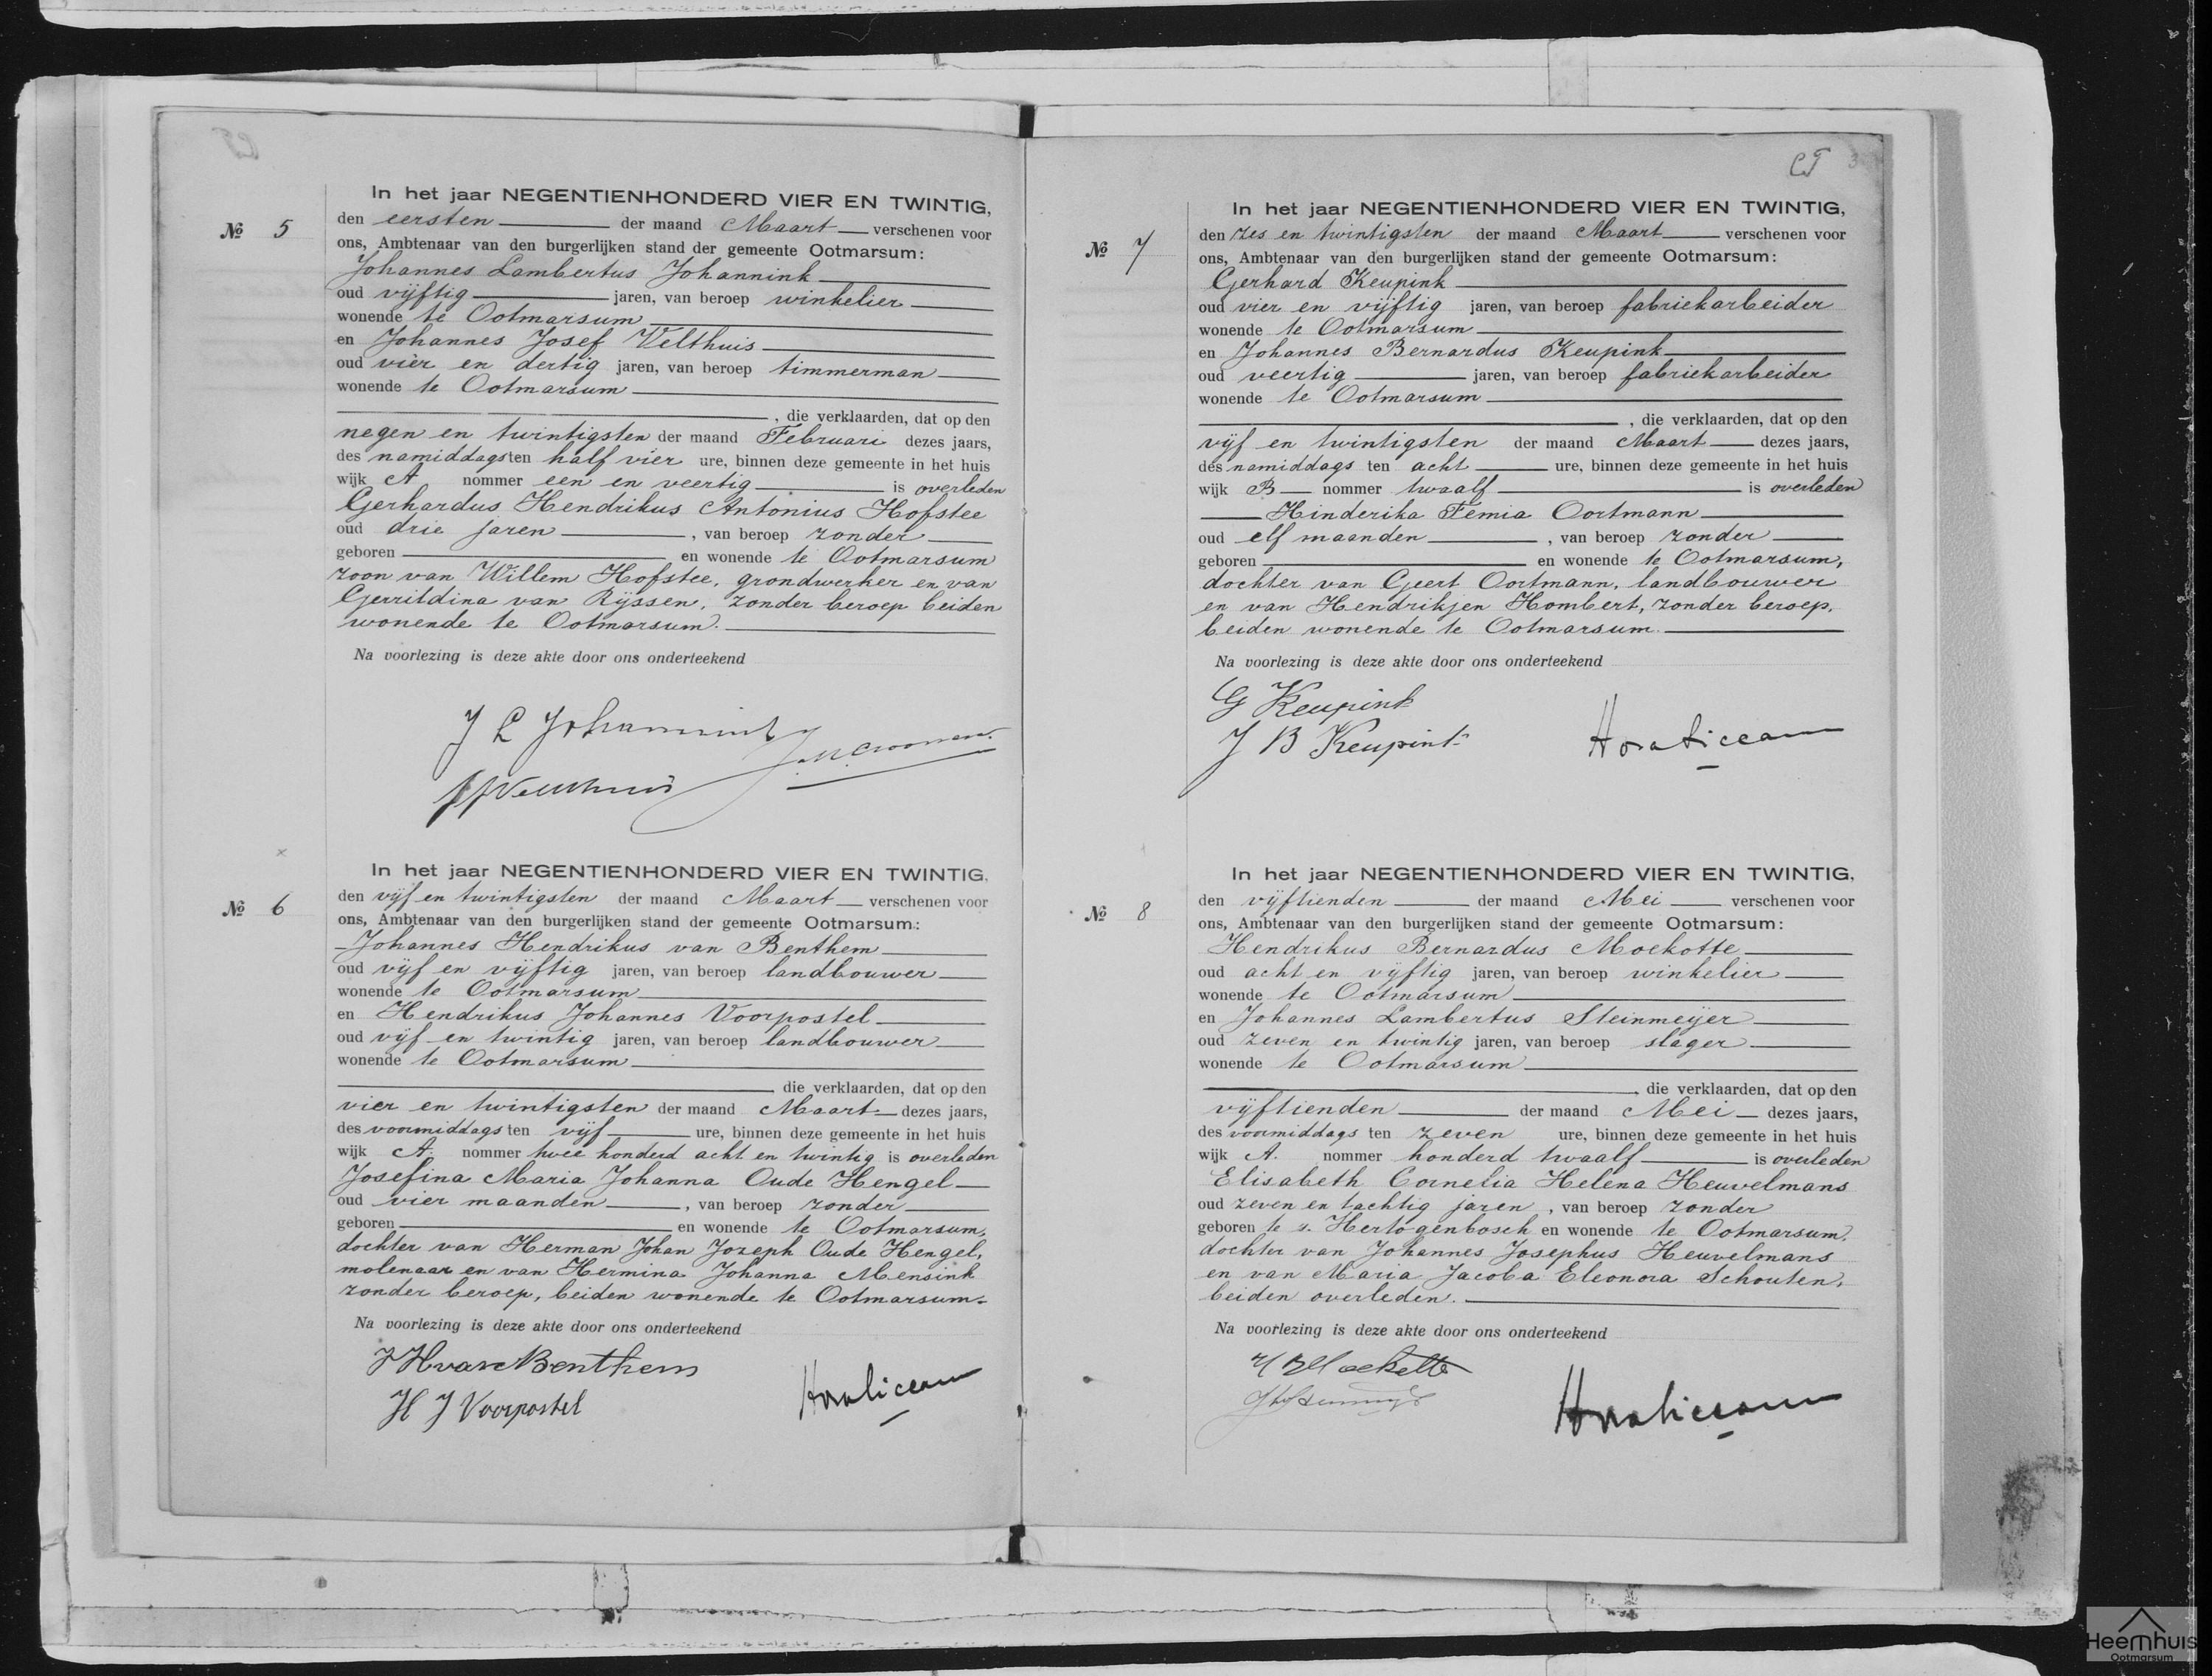 In het jaar NEGENTIENHONDERD VIER EN TWINTIG,
№ 5
den eersten der maand Maart verschenen voor
ons, Ambtenaar van den burgerlijken stand der gemeente Ootmarsum:
Johannes Lambertus Johannink
oud vijftig jaren, van beroep winkelier
wonende te Ootmarsum
en Johannes Josef Velthuis
oud vier en dertig jaren, van beroep timmerman
wonende te Ootmarsum
, die verklaarden, dat op den
negen en twintigsten der maand Februari dezes jaars,
des namiddags ten half vier ure, binnen deze gemeente in het huis
wijk A nommer een en veertig is overleden
Gerhardus Hendrikus Antonius Hofstee
oud drie jaren, van beroep zonder
geboren en wonende te Ootmarsum
zoon van Willem Hofstee, grondwerker en van
Gerritdina van Rijssen, zonder beroep beiden
wonende te Ootmarsum.
Na voorlezing is deze akte door ons onderteekend
J L Johannink
JJ Velthuis
In het jaar NEGENTIENHONDERD VIER EN TWINTIG,
№ 6
den vijf en twintigsten der maand Maart verschenen voor
ons, Ambtenaar van den burgerlijken stand der gemeente Ootmarsum:
Johannes Hendrikus van Benthem
oud vijf en vijftig jaren, van beroep landbouwer
wonende te Ootmarsum
en Hendrikus Johannes Voorpostel
oud vijf en twintig jaren, van beroep landbouwer
wonende te Ootmarsum
, die verklaarden, dat op den
vier en twintigsten der maand Maart dezes jaars,
des voormiddags ten vijf ure, binnen deze gemeente in het huis
wijk A. nommer twee honderd acht en twintig is overleden
Josefina Maria Johanna Oude Hengel
oud vier maanden, van beroep zonder
geboren en wonende te Ootmarsum,
dochter van Herman Johan Jozeph Oude Hengel,
molenaar en van Hermina Johanna Mensink
zonder beroep, beiden wonende te Ootmarsum.
Na voorlezing is deze akte door ons onderteekend
J H van Benthem
H J Voorpostel
CT 3
In het jaar NEGENTIENHONDERD VIER EN TWINTIG,
№ 7
den zes en twintigsten der maand Maart verschenen voor
ons, Ambtenaar van den burgerlijken stand der gemeente Ootmarsum:
Gerhard Keupink
oud vier en vijftig jaren, van beroep fabriekarbeider
wonende te Ootmarsum
en Johannes Bernardus Keupink
oud veertig jaren, van beroep fabriekarbeider
wonende te Ootmarsum
, die verklaarden, dat op den
vijf en twintigsten der maand Maart dezes jaars,
des namiddags ten acht ure, binnen deze gemeente in het huis
wijk B nommer twaalf is overleden
Hinderika Femia Oortmann
oud elf maanden, van beroep zonder
geboren en wonende te Ootmarsum,
dochter van Geert Oortmann, landbouwer
en van Hendrikjen Hombert, zonder beroep,
beiden wonende te Ootmarsum.
Na voorlezing is deze akte door ons onderteekend
G Keupink
J B Keupink
In het jaar NEGENTIENHONDERD VIER EN TWINTIG,
№ 8
den vijftienden der maand Mei verschenen voor
ons, Ambtenaar van den burgerlijken stand der gemeente Ootmarsum:
Hendrikus Bernardus Mockotte
oud acht en vijftig jaren, van beroep winkelier
wonende te Ootmarsum
en Johannes Lambertus Steinmeijer
oud zeven en twintig jaren, van beroep slager
wonende te Ootmarsum
, die verklaarden, dat op den
vijftienden der maand Mei dezes jaars,
des voormiddags ten zeven ure, binnen deze gemeente in het huis
wijk A. nommer honderd twaalf is overleden
Elisabeth Cornelia Helena Heuvelmans
oud zeven en tachtig jaren, van beroep zonder
geboren te s. Hertogenbosch en wonende te Ootmarsum,
dochter van Johannes Josephus Heuvelmans
en van Maria Jacoba Eleonora Schouten,
beiden overleden.
Na voorlezing is deze akte door ons onderteekend
Heemhuis
Ootmarsum